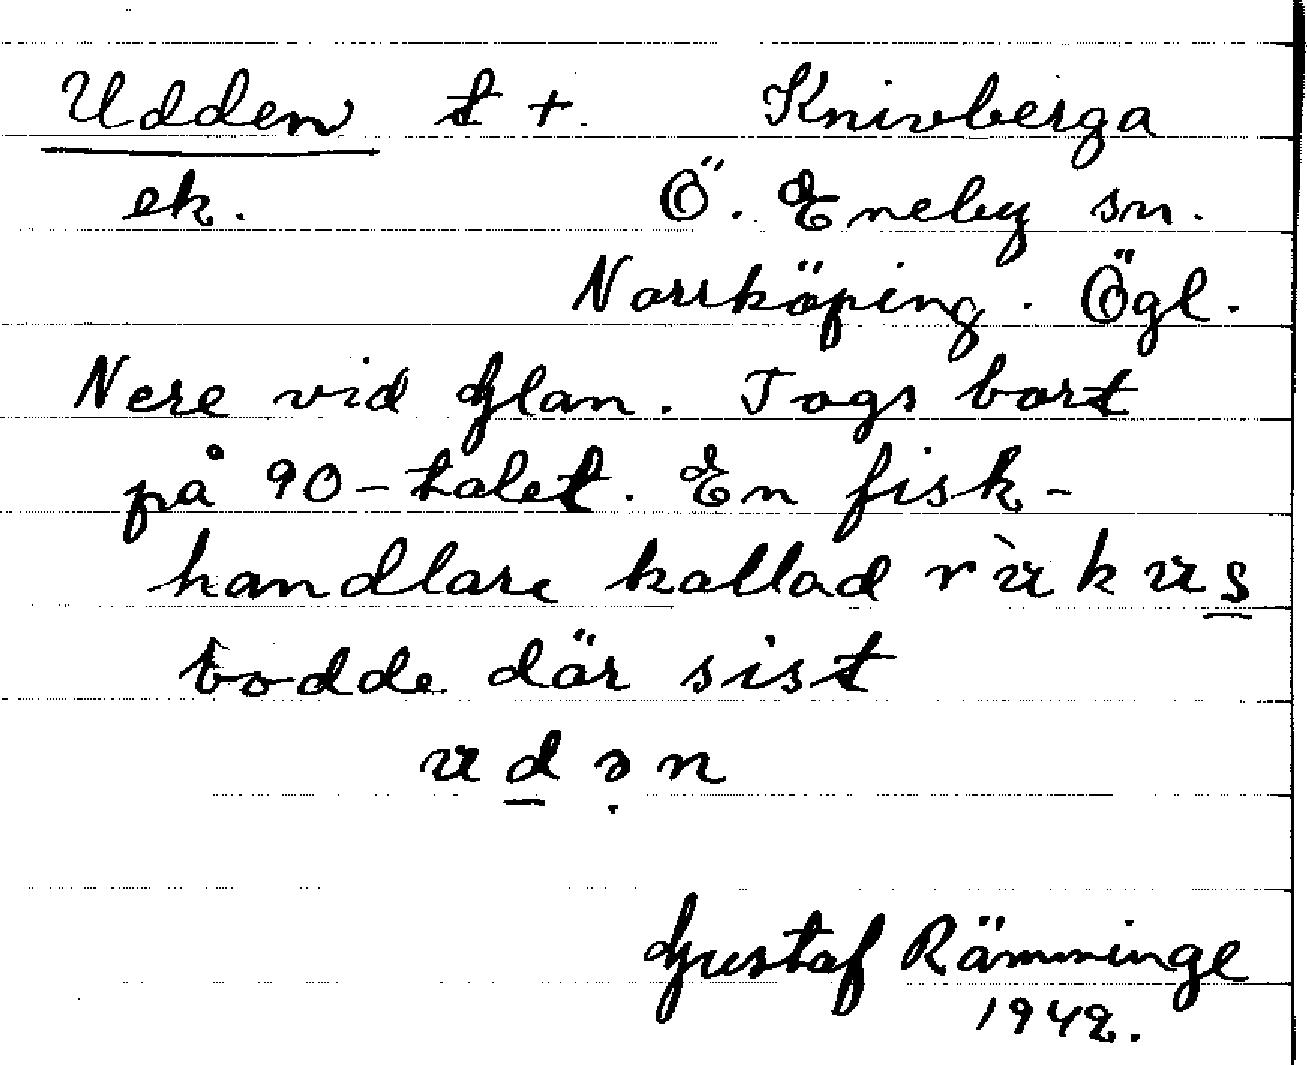 Udden t +. Knivberga
ek. Ö. Eneby sn.
Norrköping. Ögl.
Nere vid Glan. Togs bort
på 90-talet. En fisk-
handlare kallad r ù k u s
bodde där sist
u d ə n
Gustaf Rämminge
1942.